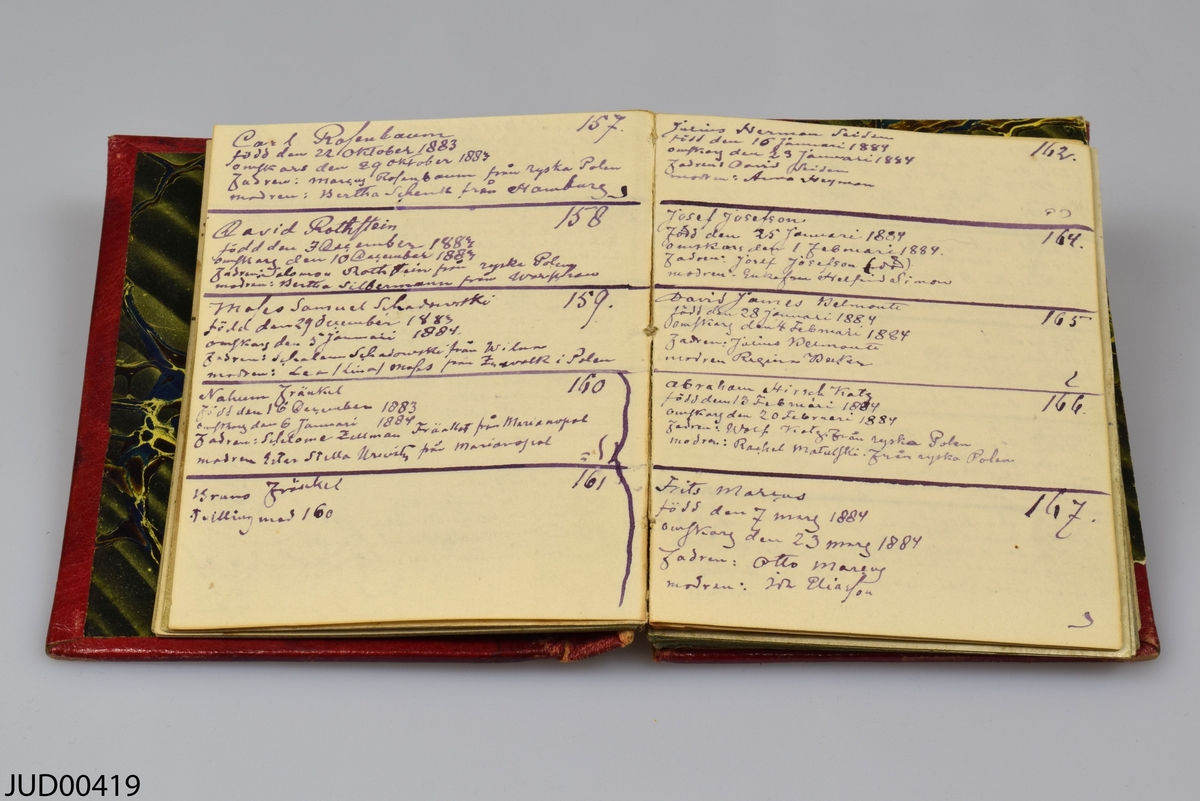 Carl Rosenbaum 157.
född den 22 Oktober 1883
omskars den 29 Oktober 1883
Fadren: Marcus Rosenbaum från ryska Polen
modren: Bertha Schenk från Hamburg
David Rothstein 158
född den 3 December 1883
omskarg den 10 Dezember 1883
Fadren: Salomon Rothstein från ryska Polen
modren: Bertha Silbermann från Warschau
Moses Samuel Schadowski 159.
född den 29 Dezember 1883
omskarg den 5 Januari 1884.
Fadren: Schalem Schadowski från Wilna
modren: Lea (Lina) Moses från Suwalk i Polen
Nahum Fränkel 160
född den 16 Dezember 1883
omskarg den 6 Januari 1884
Fadren: Schlome Zellman Fränkel från Marianopol
modren Ester Stella Urwitz från Marianopol
Bruno Fränkel 161
Tvilling med 160
Julius Herman Seiden 162.
född den 16 Januari 1884
omskarg den 23 Januari 1884
Fadren: David Seiden
modren: Anna Heyman
Josef Josefson 164.
född den 25 Januari 1884
omskarg den 1 Februari 1884.
Fadren: Josef Josefson
modren: Enkefru Helfrid Simon
David James Belmonte 165
född den 28 Januari 1884
omskarg den 4 Februari 1884
Fadren: Julius Belmonte
modren Regina
Abraham Hirsch Katz 166.
född den 13 Februari 1884
omskarg den 20 Februari 1884
Fadren: Wolf Katz från ryska Polen
modren: Rachel Matulski. från ryska Polen
Frits Marcus 167.
född den 7 marg 1884
omskarg den 23 marg 1884
Fadren: Otto Marcus
modren: Ida Eliasson
JUD00419